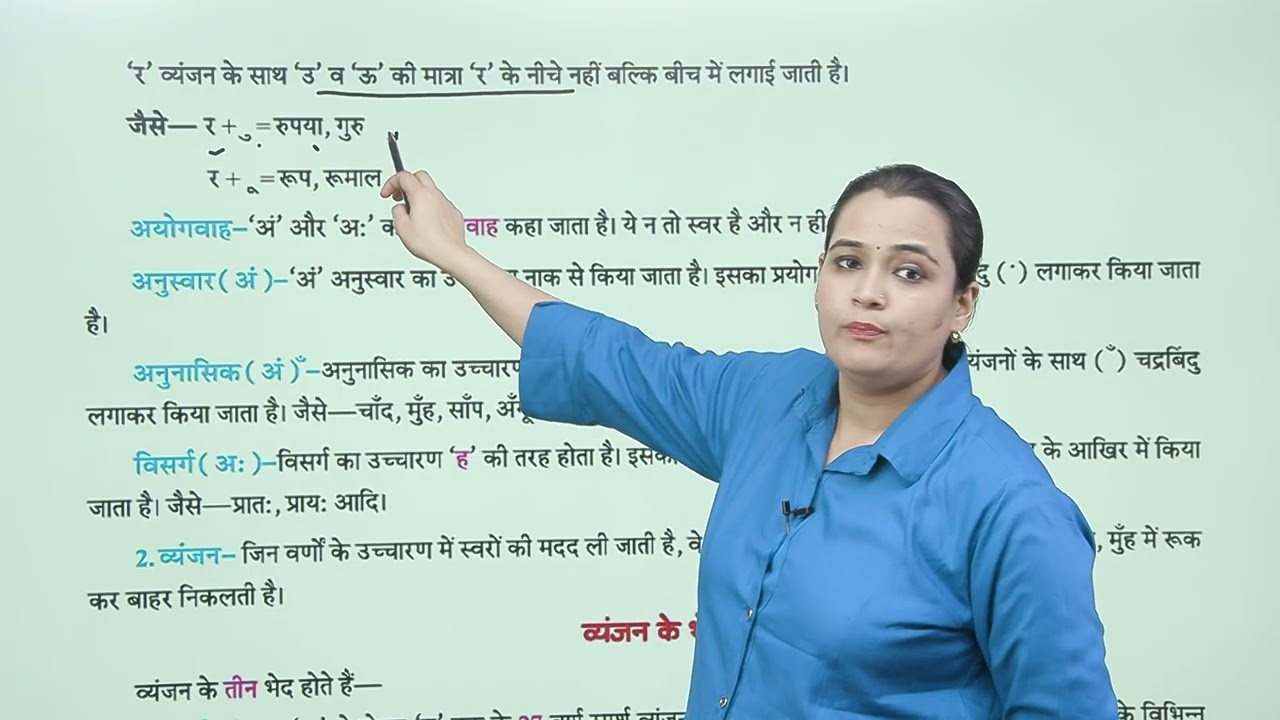 'र' व्यंजन के साथ 'उ' व 'ऊ' की मात्रा 'र' के नीचे नहीं बल्कि बीच में लगाई जाती है।
जैसे— र + ु = रुपया, गुरु
र + ू = रूप, रूमाल
अयोगवाह–'अं' और 'अः' वाह कहा जाता है। ये न तो स्वर है और न ही
अनुस्वार( अं )–'अं' अनुस्वार का नाक से किया जाता है। इसका प्रयोग (ं) लगाकर किया जाता
है।
अनुनासिक( अं )ँ–अनुनासिक का के साथ (ँ) चद्रबिंदु
लगाकर किया जाता है। जैसे—चाँद, मुँह, साँप,
विसर्ग( अः )–विसर्ग का उच्चारण 'ह' की तरह होता है। के आखिर में किया
जाता है। जैसे—प्रातः, प्रायः आदि।
2. व्यंजन– जिन वर्णों के उच्चारण में स्वरों की मदद ली जाती है, वे , मुँह में रूक
कर बाहर निकलती है।
व्यंजन के
व्यंजन के तीन भेद होते हैं—
के विभिन्न